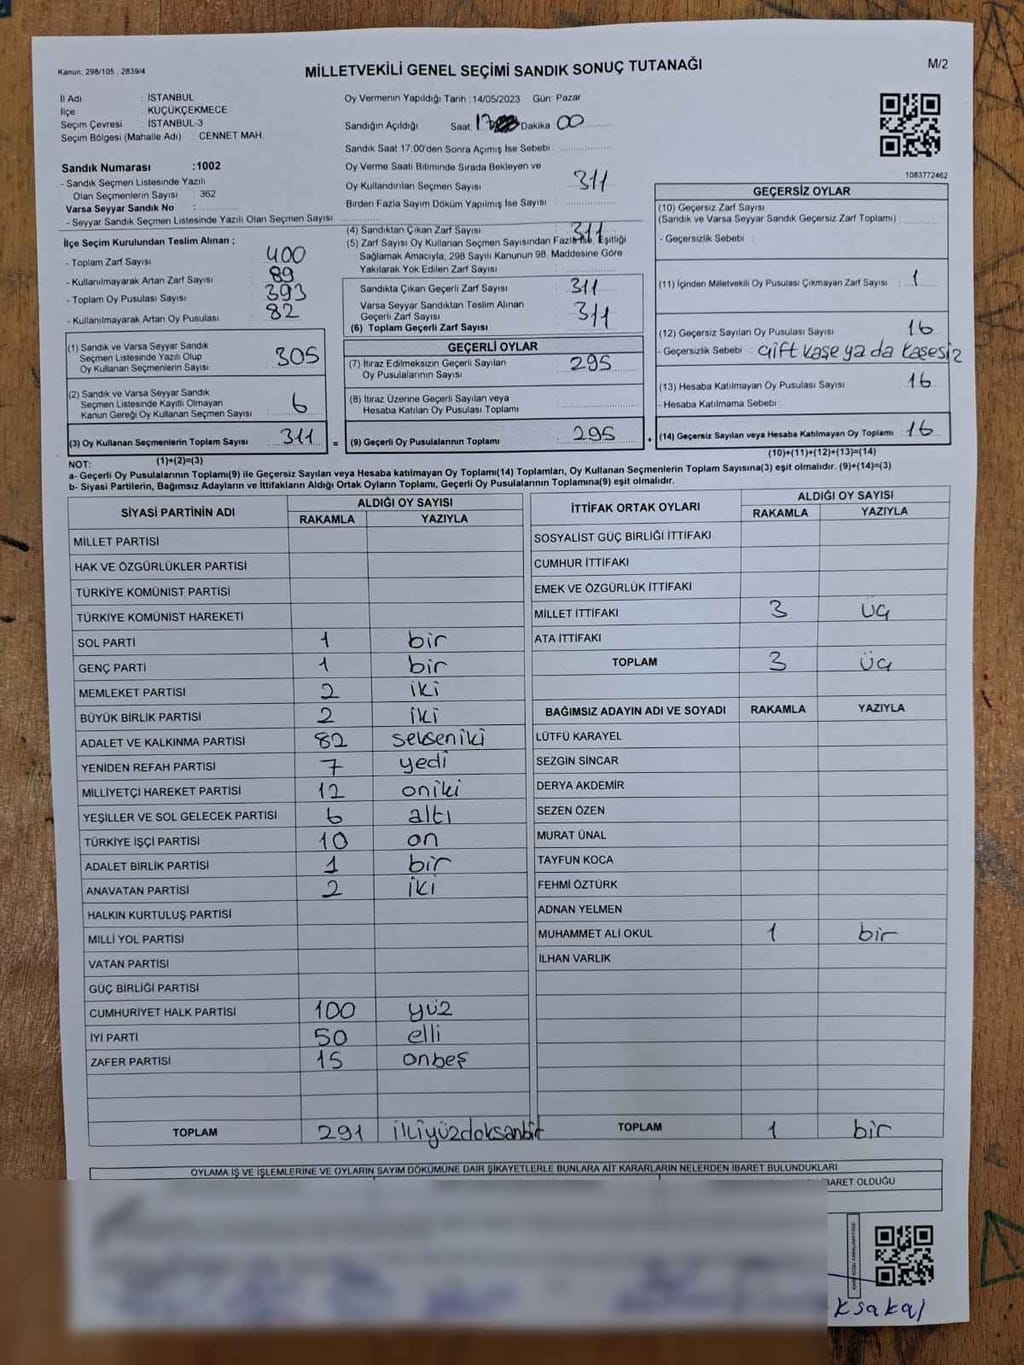 Kanun; 298/105 , 2839/4
MİLLETVEKİLİ GENEL SEÇİMİ SANDIK SONUÇ TUTANAĞI
M/2
İl Adı : İSTANBUL
İlçe : KÜÇÜKÇEKMECE
Seçim Çevresi : İSTANBUL-3
Seçim Bölgesi (Mahalle Adı) : CENNET MAH.
Sandık Numarası :1002
- Sandık Seçmen Listesinde Yazılı
Olan Seçmenlerin Sayısı : 362
Varsa Seyyar Sandık No :
- Seyyar Sandık Seçmen Listesinde Yazılı Olan Seçmen Sayısı:
İlçe Seçim Kurulundan Teslim Alınan ;
- Toplam Zarf Sayısı : 400
- Kullanılmayarak Artan Zarf Sayısı : 89
- Toplam Oy Pusulası Sayısı : 393
- Kullanılmayarak Artan Oy Pusulası : 82
(1) Sandık ve Varsa Seyyar Sandık
Seçmen Listesinde Yazılı Olup
Oy Kullanan Seçmenlerin Sayısı : 305
(2) Sandık ve Varsa Seyyar Sandık
Seçmen Listesinde Kayıtlı Olmayan
Kanun Gereği Oy Kullanan Seçmen Sayısı : 6
(3) Oy Kullanan Seçmenlerin Toplam Sayısı : 311 =
(1)+(2)=(3)
Oy Vermenin Yapıldığı Tarih :14/05/2023 Gün: Pazar
Sandığın Açıldığı Saat: 17 Dakika 00
Sandık Saat 17:00'den Sonra Açımış İse Sebebi :
Oy Verme Saati Bitiminde Sırada Bekleyen ve
Oy Kullandırılan Seçmen Sayısı : 311
Birden Fazla Sayım Döküm Yapılmış İse Sayısı :
(4) Sandıktan Çıkan Zarf Sayısı : 311
(5) Zarf Sayısı Oy Kullanan Seçmen Sayısından Fazla İse, Eşitliği
Sağlamak Amacıyla; 298 Sayılı Kanunun 98. Maddesine Göre
Yakılarak Yok Edilen Zarf Sayısı :
Sandıkta Çıkan Geçerli Zarf Sayısı : 311
Varsa Seyyar Sandıktan Teslim Alınan
Geçerli Zarf Sayısı : 311
(6) Toplam Geçerli Zarf Sayısı
GEÇERLİ OYLAR
(7) İtiraz Edilmeksizin Geçerli Sayılan
Oy Pusulalarının Sayısı : 295
(8) İtiraz Üzerine Geçerli Sayılan veya
Hesaba Katılan Oy Pusulası Toplamı :
(9) Geçerli Oy Pusulalarının Toplamı : 295 +
1083772462
GEÇERSİZ OYLAR
(10) Geçersiz Zarf Sayısı
(Sandık ve Varsa Seyyar Sandık Geçersiz Zarf Toplamı) :
- Geçersizlik Sebebi :
(11) İçinden Milletvekili Oy Pusulası Çıkmayan Zarf Sayısı : 1
(12) Geçersiz Sayılan Oy Pusulası Sayısı : 16
- Geçersizlik Sebebi : Çift kaşe ya da kaşesiz
(13) Hesaba Katılmayan Oy Pusulası Sayısı : 16
- Hesaba Katılmama Sebebi :
(14) Geçersiz Sayılan veya Hesaba Katılmayan Oy Toplamı : 16
(10)+(11)+(12)+(13)=(14)
NOT:
a- Geçerli Oy Pusulalarının Toplamı(9) ile Geçersiz Sayılan veya Hesaba katılmayan Oy Toplamı(14) Toplamları, Oy Kullanan Seçmenlerin Toplam Sayısına(3) eşit olmalıdır. (9)+(14)=(3)
b- Siyasi Partilerin, Bağımsız Adayların ve İttifakların Aldığı Ortak Oyların Toplamı, Geçerli Oy Pusulalarının Toplamına(9) eşit olmalıdır.
SİYASİ PARTİNİN ADI ALDIĞI OY SAYISI
RAKAMLA YAZIYLA
MİLLET PARTİSİ
HAK VE ÖZGÜRLÜKLER PARTİSİ
TÜRKİYE KOMÜNİST PARTİSİ
TÜRKİYE KOMÜNİST HAREKETİ
SOL PARTİ 1 bir
GENÇ PARTİ 1 bir
MEMLEKET PARTİSİ 2 iki
BÜYÜK BİRLİK PARTİSİ 2 iki
ADALET VE KALKINMA PARTİSİ 82 sekseniki
YENİDEN REFAH PARTİSİ 7 yedi
MİLLİYETÇİ HAREKET PARTİSİ 12 oniki
YEŞİLLER VE SOL GELECEK PARTİSİ 6 altı
TÜRKİYE İŞÇİ PARTİSİ 10 on
ADALET BİRLİK PARTİSİ 1 bir
ANAVATAN PARTİSİ 2 iki
HALKIN KURTULUŞ PARTİSİ
MİLLİ YOL PARTİSİ
VATAN PARTİSİ
GÜÇ BİRLİĞİ PARTİSİ
CUMHURİYET HALK PARTİSİ 100 yüz
İYİ PARTİ 50 elli
ZAFER PARTİSİ 15 onbeş
TOPLAM 291 ikiyüzdoksanbir
İTTİFAK ORTAK OYLARI ALDIĞI OY SAYISI
RAKAMLA YAZIYLA
SOSYALİST GÜÇ BİRLİĞİ İTTİFAKI
CUMHUR İTTİFAKI
EMEK VE ÖZGÜRLÜK İTTİFAKI
MİLLET İTTİFAKI 3 üç
ATA İTTİFAKI
TOPLAM 3 üç
BAĞIMSIZ ADAYIN ADI VE SOYADI RAKAMLA YAZIYLA
LÜTFÜ KARAYEL
SEZGİN SİNCAR
DERYA AKDEMİR
SEZEN ÖZEN
MURAT ÜNAL
TAYFUN KOCA
FEHMİ ÖZTÜRK
ADNAN YELMEN
MUHAMMET ALİ OKUL 1 bir
İLHAN VARLIK
TOPLAM 1 bir
OYLAMA İŞ VE İŞLEMLERİNE VE OYLARIN SAYIM DÖKÜMÜNE DAİR ŞİKAYETLERLE BUNLARA AİT KARARLARIN NELERDEN İBARET BULUNDUKLARI
BARET OLDUĞU
ksakal